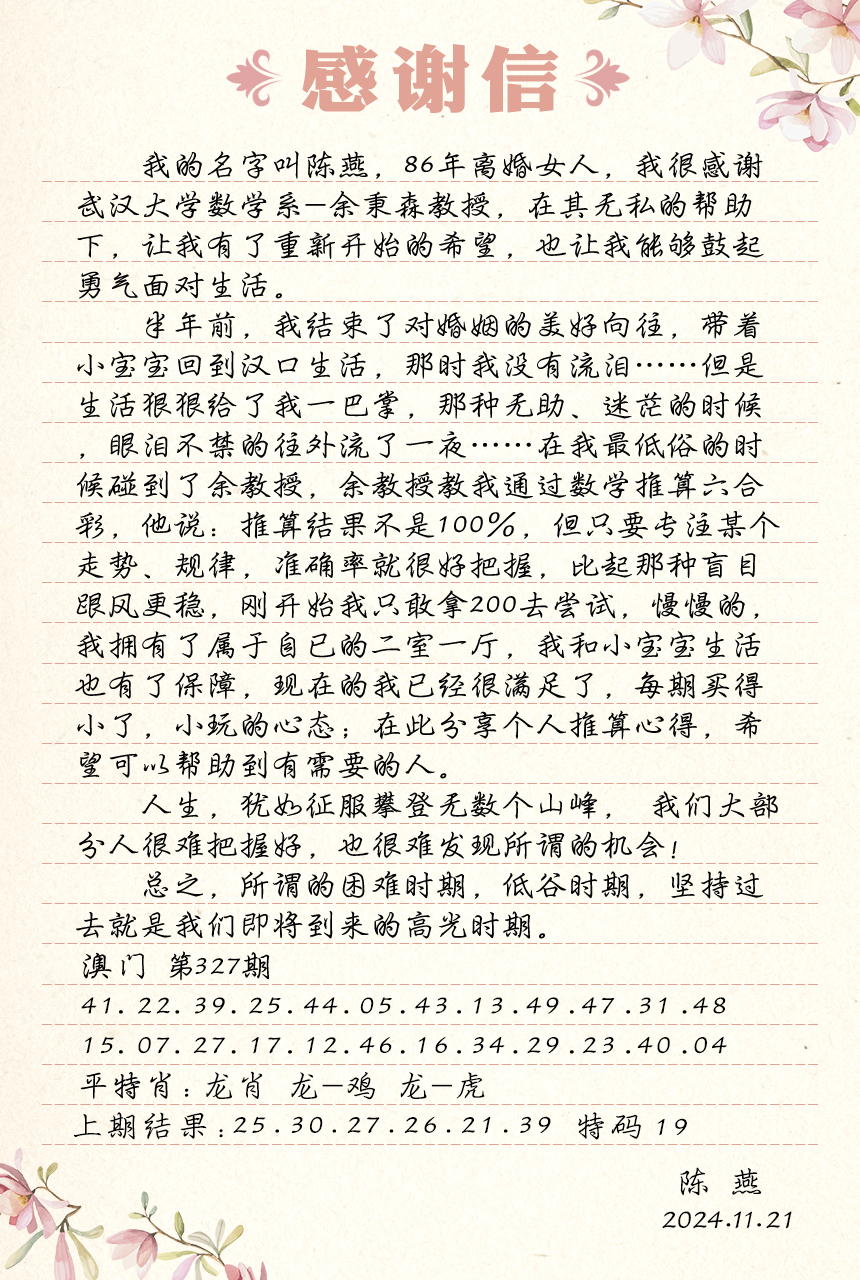 感谢信
我的名字叫陈燕，86年离婚女人，我很感谢
武汉大学数学系—余秉森教授，在其无私的帮助
下，让我有了重新开始的希望，也让我能够鼓起
勇气面对生活。
半年前，我结束了对婚姻的美好向往，带着
小宝宝回到汉口生活，那时我没有流泪……但是
生活狠狠给了我一巴掌，那种无助、迷茫的时候
，眼泪不禁的往外流了一夜……在我最低俗的时
候碰到了余教授，余教授教我通过数学推算六合
彩，他说：推算结果不是100%，但只要专注某个
走势、规律，准确率就很好把握，比起那种盲目
跟风更稳，刚开始我只敢拿200去尝试，慢慢的，
我拥有了属于自已的二室一厅，我和小宝宝生活
也有了保障，现在的我已经很满足了，每期买得
小了，小玩的心态；在此分享个人推算心得，希
望可以帮助到有需要的人。
人生，犹如征服攀登无数个山峰， 我们大部
分人很难把握好，也很难发现所谓的机会！
总之，所谓的困难时期，低谷时期，坚持过
去就是我们即将到来的高光时期。
澳门 第327期
41.22.39.25.44.05.43.13.49.47.31.48
15.07.27.17.12.46.16.34.29.23.40.04
平特肖：龙肖 龙—鸡 龙—虎
上期结果：25.30.27.26.21.39 特码 19
陈 燕
2024.11.21